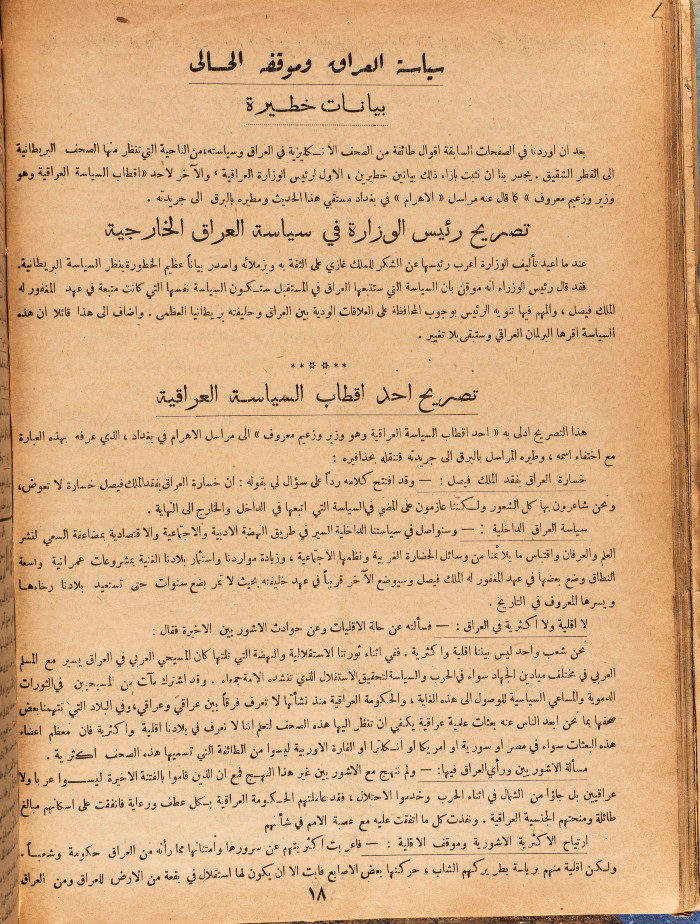 سياسة العراق وموقفه الحالي
بيانات خطيرة
بعد ان اوردنا في الصفحات السابقة اقوال طائفة من الصحف الانكليزية في العراق وسياسته، من الناحية التي تنظر منها الصحف البريطانية
الى القطر الشقيق . يجدر بنا ان نثبت بازاء ذلك بيانين خطيرين ، الاول لرئيس الوزارة العراقية ، والآخر لاحد «اقطاب السياسة العراقية وهو
وزير وزعيم معروف » كما قال عنه مراسل « الاهرام » في بغداد مستقي هذا الحديث ومطيره بالبرق الى جريدته .
تصريح رئيس الوزارة في سياسة العراق الخارجية
عند ما اعيد تأليف الوزارة اعرب رئيسها عن الشكر للملك غازي على الثقة به وبزملائه واصدر بياناً عظيم الخطورة بنظر السياسة البريطانية.
فقد قال رئيس الوزراء انه موقن بان السياسة التي ستتبعها العراق في المستقبل ستكون السياسة نفسها التي كانت متبعة في عهد المغفور له
الملك فيصل ، والمهم فيها تنويه الرئيس بوجوب المحافظة على العلاقات الودية بين العراق وحليفته بريطانيا العظمى . واضاف الى هذا قائلا ان هذه
السياسة اقرها البرلمان العراقي وستبقى بلا تغيير .
**¤¤**
تصريح احد اقطاب السياسة العراقية
هذا التصريح ادلى به « احد اقطاب السياسة العراقية وهو وزير وزعيم معروف » الى مراسل الاهرام في بغداد ، الذي عرفه بهذه العبارة
مع اختفاء اسمه ، وطيره المراسل بالبرق الى جريدته فننقله بحذافيره :
خسارة العراق بفقد الملك فيصل : — وقد افتتح كلامه رداً على سؤال لي بقوله : ان خسارة العراق بفقد الملك فيصل خسارة لا تعوض،
ونحن شاعرون بها كل الشعور ولكننا عازمون على المضي في السياسة التي اتبعها في الداخل والخارج الى النهاية .
سياسة العراق الداخلية : — وسنواصل في سياستنا الداخلية السير في طريق النهضة الادبية والاجتماعية والاقتصادية بمضاعفة السعي لنشر
العلم والعرفان واقتباس ما يلائمنا من وسائل الحضارة الغربية ونظمها الاجتماعية ، وزيادة مواردنا واستثمار بلادنا الغنية بمشروعات عمرانية واسعة
النطاق وضع بعضها في عهد المغفور له الملك فيصل وسيوضع الآخر قريباً في عهد خليفته بحيث لا تمر بضع سنوات حتى تستعيد بلادنا رخاءها
ويسرها المعروف في التاريخ .
لا اقلية ولا اكثرية في العراق : — فسألته عن حالة الاقليات وعن حوادث الاشوريين الاخيرة فقال :
نحن شعب واحد ليس بيننا اقلية واكثرية . ففي اثناء ثورتنا الاستقلالية والنهضة التي تلتها كان المسيحي العربي في العراق يسير مع المسلم
العربي في مختلف ميادين الجهاد سواء في الحرب والسياسة لتحقيق الاستقلال الذي تنشده الامة جمعاء . وقد اشترك مآت من المسيحيين في الثورات
الدموية والمساعي السياسية للوصول الى هذه الغاية ، والحكومة العراقية منذ نشأتها لا تعرف فرقاً بين عراقي وعراقي، وفي البلاد التي تتهمنا بعض
صحفها بما نحن ابعد الناس عنه بعثات علمية عراقية يكفي ان تنظر اليها هذه الصحف لتعلم اننا لا نعرف في بلادنا اقلية واكثرية فان معظم اعضاء
هذه البعثات سواء في مصر او سورية او امريكا او انكلترا او القارة الاوربية ليسوا من الطائفة التي تسميها هذه الصحف اكثرية .
مسألة الاشوريين ورأي العراق فيها: — ولم ننهج مع الاشوريين غير هذا النهج فمع ان الذين قاموا بالفتنة الاخيرة ليسوا عربا ولا
عراقيين بل جاؤا من الشمال في اثناء الحرب وخدموا الاحتلال ، فقد عاملتهم الحكومة العراقية بكل عطف ورعاية فانفقت على اسكانهم مبالغ
طائلة ومنحتهم الجنسية العراقية . ونفذت كل ما اتفقت عليه مع عصبة الامم في شأنهم
ارتياح الاكثرية الاشورية وموقف الاقلية : — فاعربت اكثريتهم عن سرورها وامتنانها مما رأته من العراق حكومة وشعبا .
ولكن اقلية منهم برياسة بطريركهم الشاب ، حركتها بعض الاصابع فابت الا ان يكون لها استقلال في بقعة من الارض للعراق ومن العراق
١٨